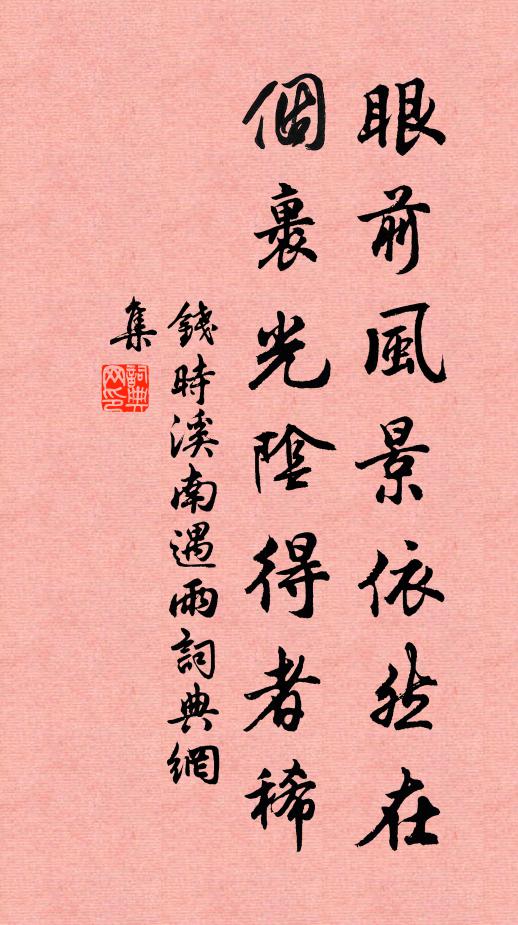 眼前風景依然在
個裏光陰得者稀
錢時溪南遇雨詞典網
集
詞典
网印